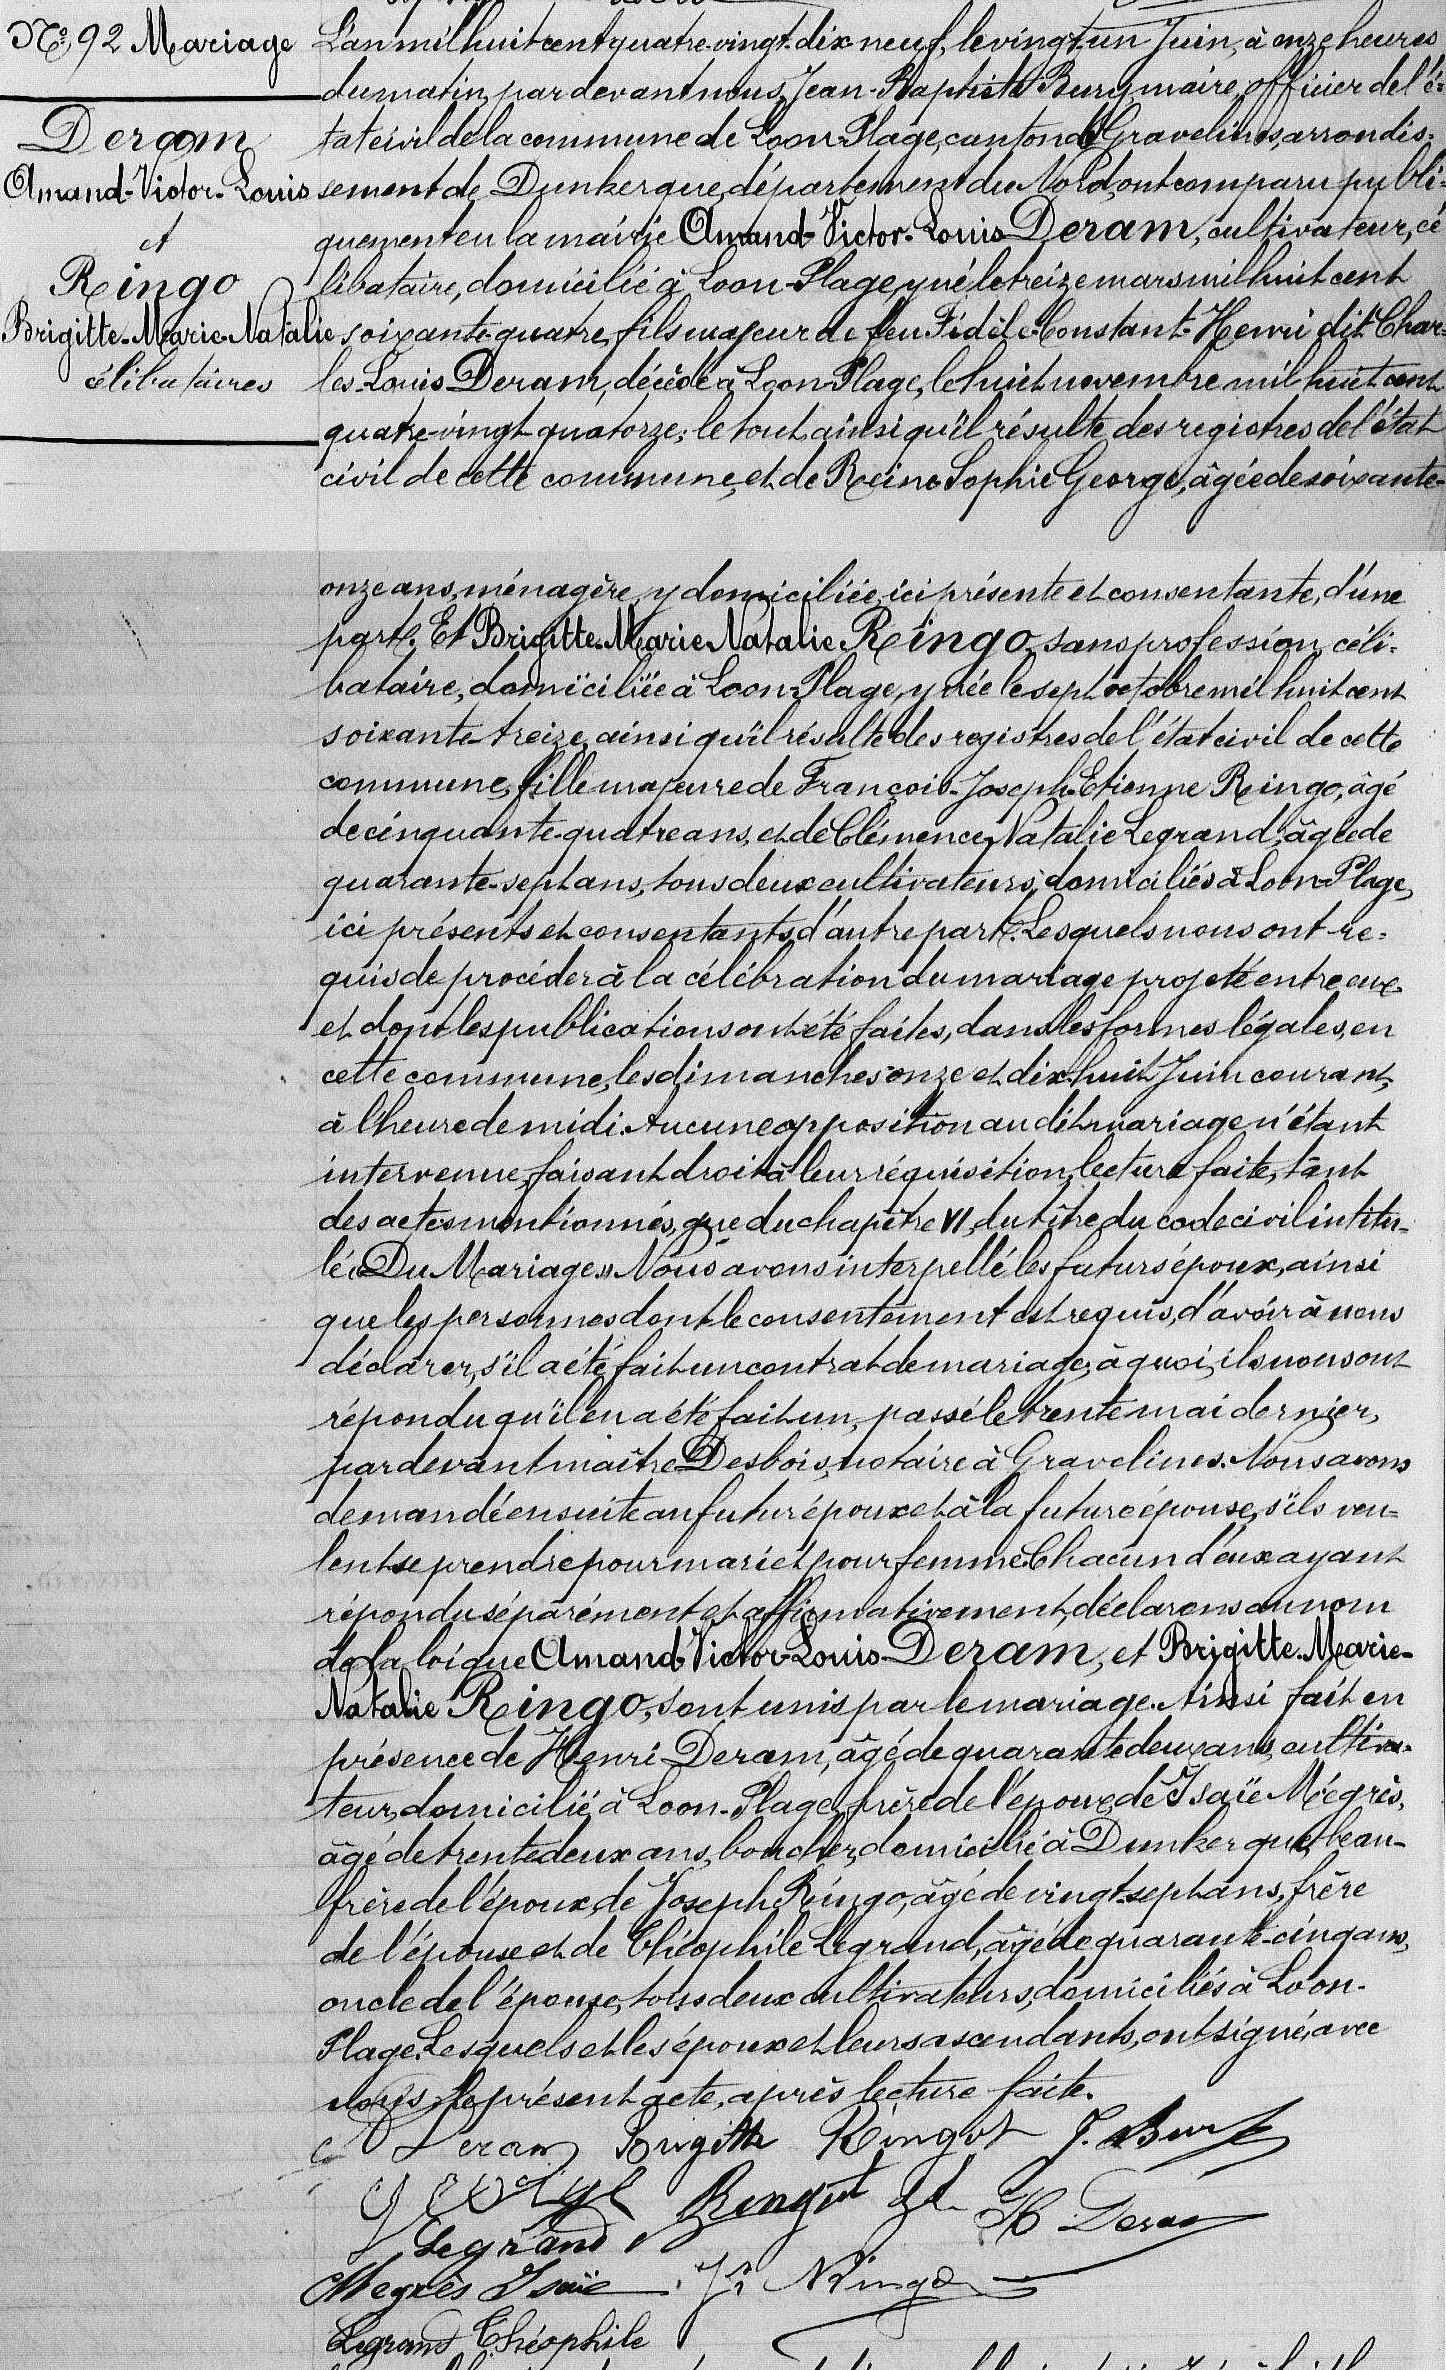 N° 92 Mariage
Deram
Amand-Victor-Louis
et
Ringo
Brigitte-Marie-Natalie
célibataires
L'an mil huit cent quatre-vingt-dix-neuf, le vingt-un Juin, à onze heures
du matin, par devant nous, Jean-Baptiste Burg, maire, officier de l'é-
tat civil de la commune de Loon-Plage, canton de Gravelines, arrondis-
sement de Dunkerque, département du Nord, ont comparu publi-
quement en la mairie Amand-Victor-Louis Deram, cultivateur, cé
libataire, domicilié à Loon-Plage, y né le treize mars mil huit cent
soixante-quatre, fils majeur de feu Fidèle-Constant-Henri dit Char-
les-Louis Deram, décédé à Loon-Plage, le huit novembre mil huit cent
quatre-vingt-quatorze; le tout ainsi qu'il résulte des registres de l'état
civil de cette commune, et de Reine Sophie George, âgée de soixante-
onze ans, ménagère, y domiciliée, ici présente et consentante, d'une
part. Et Brigitte-Marie-Natalie Ringo, sans profession, céli-
bataire, domiciliée à Loon-Plage, y née le sept octobre mil huit cent
soixante-treize, ainsi qu'il résulte des registres de l'état civil de cette
commune, fille majeure de François-Joseph-Etienne Ringo, âgé
de cinquante-quatre ans, et de Clémence Natalie Legrand, âgée de
quarante-sept ans, tous deux cultivateurs, domiciliés à Loon-Plage,
ici présents et consentants, d'autre part. Lesquels nous ont re-
quis de procéder à la célébration du mariage projeté entre eux
et dont les publications ont été faites, dans les formes légales, en
cette commune, les dimanches onze et dix huit Juin courant,
à l'heure de midi. Aucune opposition audit mariage n'étant
intervenue, faisant droit à leur réquisition, lecture faite, tant
des actes mentionnés, que du chapitre VI, du titre du code civil intitu-
lé « Du Mariage » Nous avons interpellé les futurs époux, ainsi
que les personnes dont le consentement est requis, d'avoir à nous
déclarer, s'il a été fait un contrat de mariage, à quoi, ils nous ont
répondu qu'il en a été fait un, passé le trente mai dernier,
par devant maître Desbois, notaire à Gravelines. Nous avons
demandé ensuite au futur époux et à la future épouse, s'ils veu-
lent se prendre pour mari et pour femme. Chacun d'eux ayant
répondu séparément et affirmativement, déclarons au nom
de la loi que Amand-Victor-Louis Deram, et Brigitte-Marie-
Natalie Ringo, sont unis par le mariage. Ainsi fait en
présence de Henri Deram, âgé de quarante deux ans, cultiva-
teur, domicilié à Loon-Plage, frère de l'époux, de Isaïe Mégrès,
âgé de trente deux ans, boucher, domicilié à Dunkerque, beau-
frère de l'époux, de Joseph Ringo, âgé de vingt-sept ans, frère
de l'épouse et de Théophile Legrand, âgé de quarante-cinq ans,
oncle de l'épouse, tous deux cultivateurs, domiciliés à Loon-
Plage. Lesquels et les époux et leurs ascendants, ont signé, avec
nous, le présent acte, après lecture faite.
A Deram Brigitte Ringot J. Burg
George Ringot H Deram
Legrand
Megrès Isaïe Ringo
Legrand Théophile